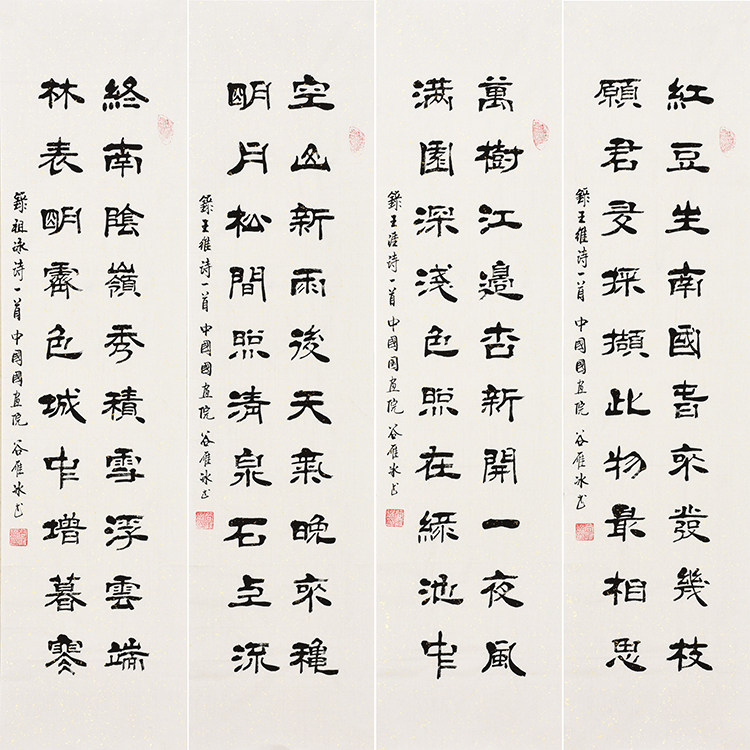 紅豆生南國春來發幾枝
願君多採擷此物最相思
錄王維诗一首 中國國画院 谷雁冰书
萬樹江邊杏新開一夜風
满園深淺色照在綠池中
錄王涯诗一首 中國國画院 谷雁冰书
空山新雨後天氣晚來秋
明月松間照清泉石上流
錄王維诗一首 中國國画院 谷雁冰书
終南陰嶺秀積雪浮雲端
林表明霽色城中增暮寒
錄祖泳诗一首 中國國画院 谷雁冰书